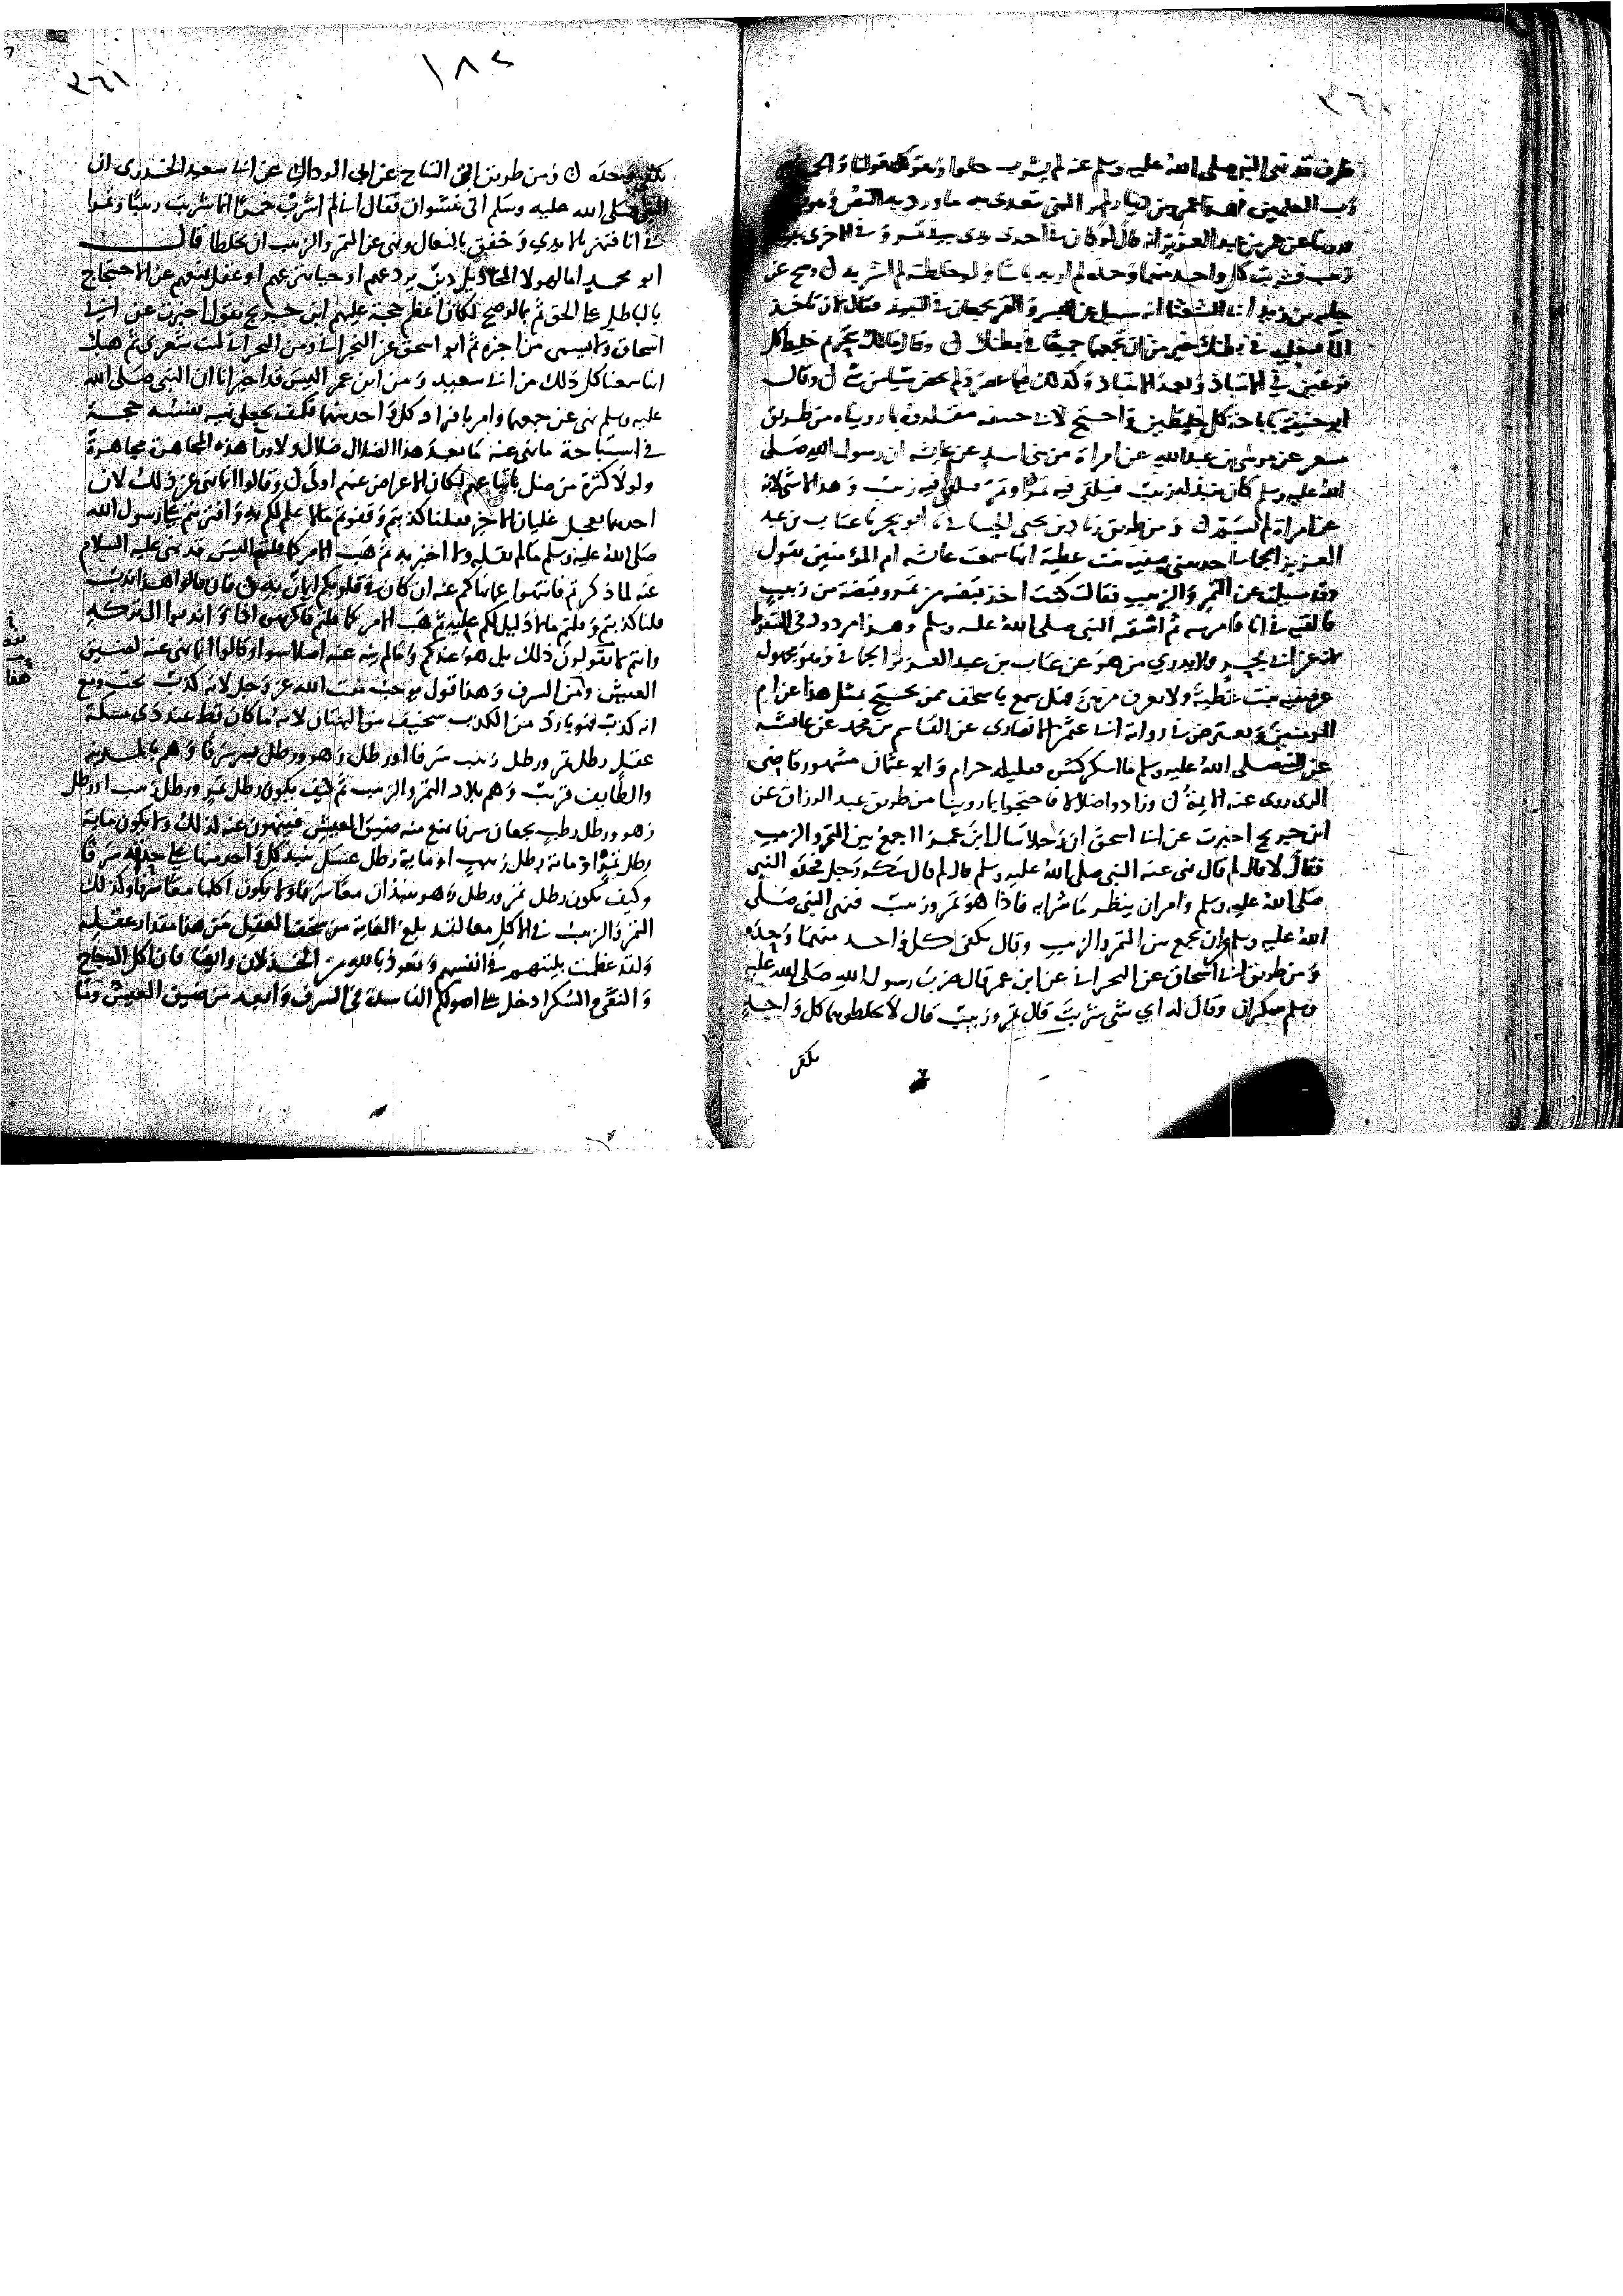 طرف قد نهى النبي صلى الله عليه وسلم عنه لم يشرب حلوا
رب العلمين فهذا عمر بن دينار لم ير النهي يتعدى به ما ورد به النص
روينا عن عمر بن عبد العزيز انه قال لو كان في احدى يدي نبيذ تمر وفي الاخرى نبيذ
زبيب فشربت كل واحد منهما وحده لم ار به باسا ولو خلطته لم اشربه ن وصح عن
جابر بن زيد ابي الشعثا انه سئل عن البسر والتمر يجمعان في النبيذ فقال لان تاخذ
الما فتجليه في بطنك خير من ان تجمعهما جميعا في بطنك ن وقال مالك بتحريم خليط كل
نوعين في الانتباذ وبعد الانتباذ وكذلك فيما عصر ولم يخص شيا من شي ن وقال
ابو حنيفة باباحة كل خليطين واحتج لابي حنيفة مقلدوه بما رويناه من طريق
مسعر عن موسى بن عبد الله عن امراة من بني اسد عن عايشه ان رسول الله صلى
الله عليه وسلم كان ينبذ له زبيب فيلقى فيه تمر او تمر فيلقى فيه زبيب وهذا لا شي لانه
عن امراة لم تسم ن ومن طريق زياد بن يحيى الحساني نا ابو بحر نا عتاب بن عبد
العزيز الحماني حدثتني صفية بنت عطية انها سمعت عايشه ام المؤمنين تقول
وقد سيلت عن التمر والزبيب فقالت كنت اخذ قبضه من تمر وقبضة من زبيب
فالقيه في انا فامرسه ثم اسقيه النبي صلى الله عليه وسلم وهذا مردود في السقوط
لانه عن ابي بحر ولا يدرى من هو عن عتاب بن عبد العزيز الحماني وهو مجهول
عن صفية بنت عطية ولا تعرف من هي فهل سمع باسخف ممن يحتج بمثل هذا عن ام
المومنين ويعترض في رواية ابي عثمن الانصاري عن القاسم بن محمد عن عايشه
عن النبي صلى الله عليه وسلم ما اسكر كثيره فقليله حرام وابو عثمان مشهور قاضي
الري روى عنه الايمة ن وزادوا ضلالا فاحتجوا بما روينا من طريق عبد الرزاق عن
ابن جريج اخبرت عن ابي اسحق ان رجلا سال ابن عمر ااجمع بين التمر والزبيب
فقال لا قال لم قال نهى عنه النبي صلى الله عليه وسلم قال لم قال سكر رجل فحده النبي
صلى الله عليه وسلم وامر ان ينظر ما شرابه فاذا هو تمر وزبيب فنهى النبي صلى
الله عليه وسلم ان يجمع بين التمر والزبيب وقال يكفي كل واحد منهما وحده
ومن طريق ابي اسحاق عن النجراني عن ابن عمر قال ضرب رسول الله صلى الله عليه
وسلم سكران وقال له اي شي شربت قال تمر وزبيب قال لا تخلطوهما كل واحد
يكفي
١٨٢
٢٦١
يكفي وحده ن ومن طريق ابي التياح عن ابي الوداك عن ابي سعيد الخدري ان
النبي صلى الله عليه وسلم اتي بنشوان فقال اني لم اشرب خمرا انما شربت زبيبا وتمرا
في انا فنهز بالايدي وخفق بالنعال ونهى عن التمر والزبيب ان يخلطا قال
ابو محمد اما لهولا المخاذيل دين يردعهم او حيا يزعهم او عقل يمنعهم عن الاحتجاج
بالباطل على الحق ثم بالوضيح لكان اعظم حجة عليهم ابن جريج يقول اخبرت عن ابي
اسحاق ولا يسمى من اخبره ثم ابو اسحق عن النجراني ومن النجراني ليت شعري ثم هبك
اننا سمعنا كل ذلك من ابي سعيد ومن ابن عمر اليس قد اخبرانا ان النبي صلى الله
عليه وسلم نهى عن جمعهما وامر بافراد كل واحد منهما فكيف يجعل نهيه نفسه حجة
في استباحة ما نهى عنه ما بعد هذا الضلال ضلال ولا ورا هذه المجاهرة مجاهرة
ولولا كثرة من ضل باتباعهم لكان الاعراض عنهم اولى ن وقالوا انما نهى عن ذلك لان
احدهما يعجل غليان الاخر فقلنا كذبتم وقفوتم ما لا علم لكم به وافتريتم على رسول الله
صلى الله عليه وسلم ما لم يقله ولا اخبر به ثم هب الامر كما قلتم اليس قد نهى عليه السلام
عنه لما ذكرتم فانتهوا عما نهاكم عنه ان كان في قلوبكم ايمان به ن فان قالوا هو ندب
قلنا كذبتم وقلتم ما لا دليل لكم عليه ثم هب الامر كما قلتم فاكرهوه اذا واندبوا الى تركه
وانتم لا تقولون ذلك بل هو عندكم وما لم ينه عنه اصلا سوا وقالوا انما نهى عنه لضيق
العيش ولان من السرف وهذا قول يوجب مقت الله عز وجل لانه كذب بحت ومع
انه كذب فهو بارد من الكذب سخيف من البهتان لانه ما كان قط عند ذي مسكة
عقل رطل تمر ورطل زبيب سرفا او رطل زهو ورطل بسر سرفا وهم بالمدينة
والطايف قريب وهم بلاد التمر والزبيب ثم كيف يكون رطل تمر ورطل زبيب او رطل
زهو ورطل رطب يجمعان سرفا يمنع منه ضيق العيش فينهون عنه لذلك ولا يكون ماية
رطل تمر او ماية رطل زبيب او ماية رطل عسل تنبذ كل واحد منها على حدته سرفا
وكيف يكون رطل تمر ورطل زهو ينبذان معا سرفا ولا يكون اكلهما معا سرفا وكذلك
التمر والزبيب في الاكل معا لقد بلغ الغاية من سخف العقل من هذا مقدار عقله
ولقد عظمت بليتهم في انفسهم ونعوذ بالله من الخذلان وايضا فان اكل الدجاج
والنقي والسكر ادخل على اصولكم الفاسدة في السرف وابعد من ضيق العيش وما